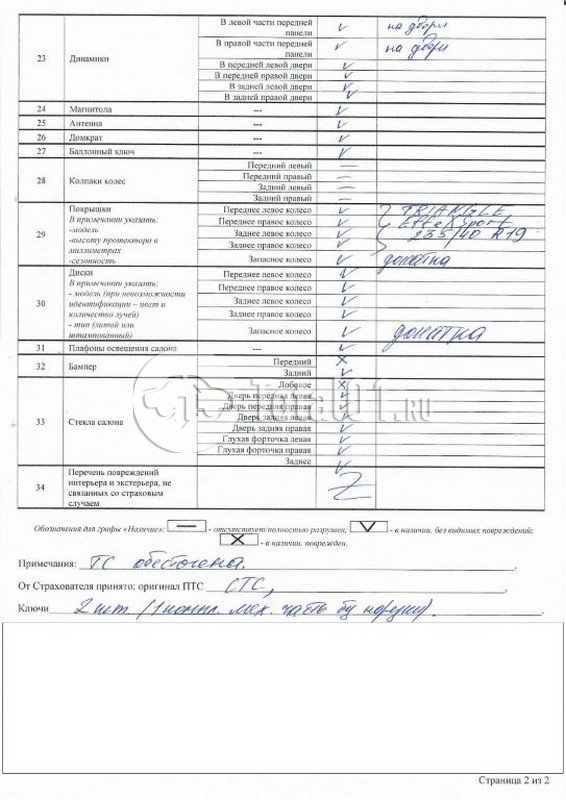 23 Динамики
В левой части передней панели V на двери
В правой части передней панели V на двери
В передней левой двери V
В передней правой двери V
В задней левой двери V
В задней правой двери V
24 Магнитола --- V
25 Антенна --- V
26 Домкрат --- V
27 Баллонный ключ --- V
28 Колпаки колес
Передний левый —
Передний правый —
Задний левый —
Задний правый —
29 Покрышки
В примечании указать:
-модель
-высоту протектора в
миллиметрах
-сезонность
Переднее левое колесо V TRIANGLE
Переднее правое колесо V Sport
Заднее левое колесо V 235/40 R19
Заднее правое колесо V
Запасное колесо V докатка
30 Диски
В примечании указать:
- модель (при невозможности
идентификации – цвет и
количества лучей)
- тип (литой или
штампованный)
Переднее левое колесо V
Переднее правое колесо V
Заднее левое колесо V
Заднее правое колесо V
Запасное колесо V докатка
31 Плафоны освещения салона --- V
32 Бампер
Передний X
Задний V
33 Стекла салона
Лобовое X
Дверь передняя левая V
Дверь передняя правая V
Дверь задняя левая V
Дверь задняя правая V
Глухая форточка левая V
Глухая форточка правая V
Заднее V
Total01.RU
34 Перечень повреждений
интерьера и экстерьера, не
связанных со страховым
случаем
Z
Обозначения для графы «Наличие»: — - отсутствует/полностью разрушен; V - в наличии, без видимых повреждений;
X - в наличии, поврежден.
Примечания: ТС обесточена.
От Страхователя принято: оригинал ПТС СТС,
Ключи 2 шт. (1 компл. мех. часть бу наружи).
Страница 2 из 2